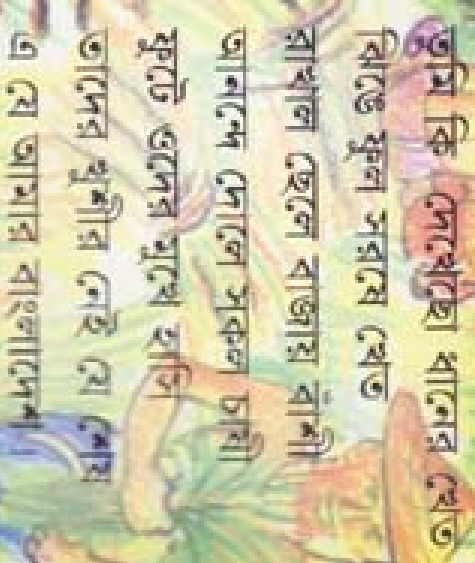 তুমি কি দেখেছো ধানের ক্ষেত
ঝিঙে ফুল সরষে ক্ষেত
রাখাল ছেলে বাজায় বাঁশী
আনন্দে দোলে সকল চাষী
ফুটে ওদের মুখে হাসি
তাদের খুশীর নেই যে শেষ
এ যে আমার বাংলাদেশ